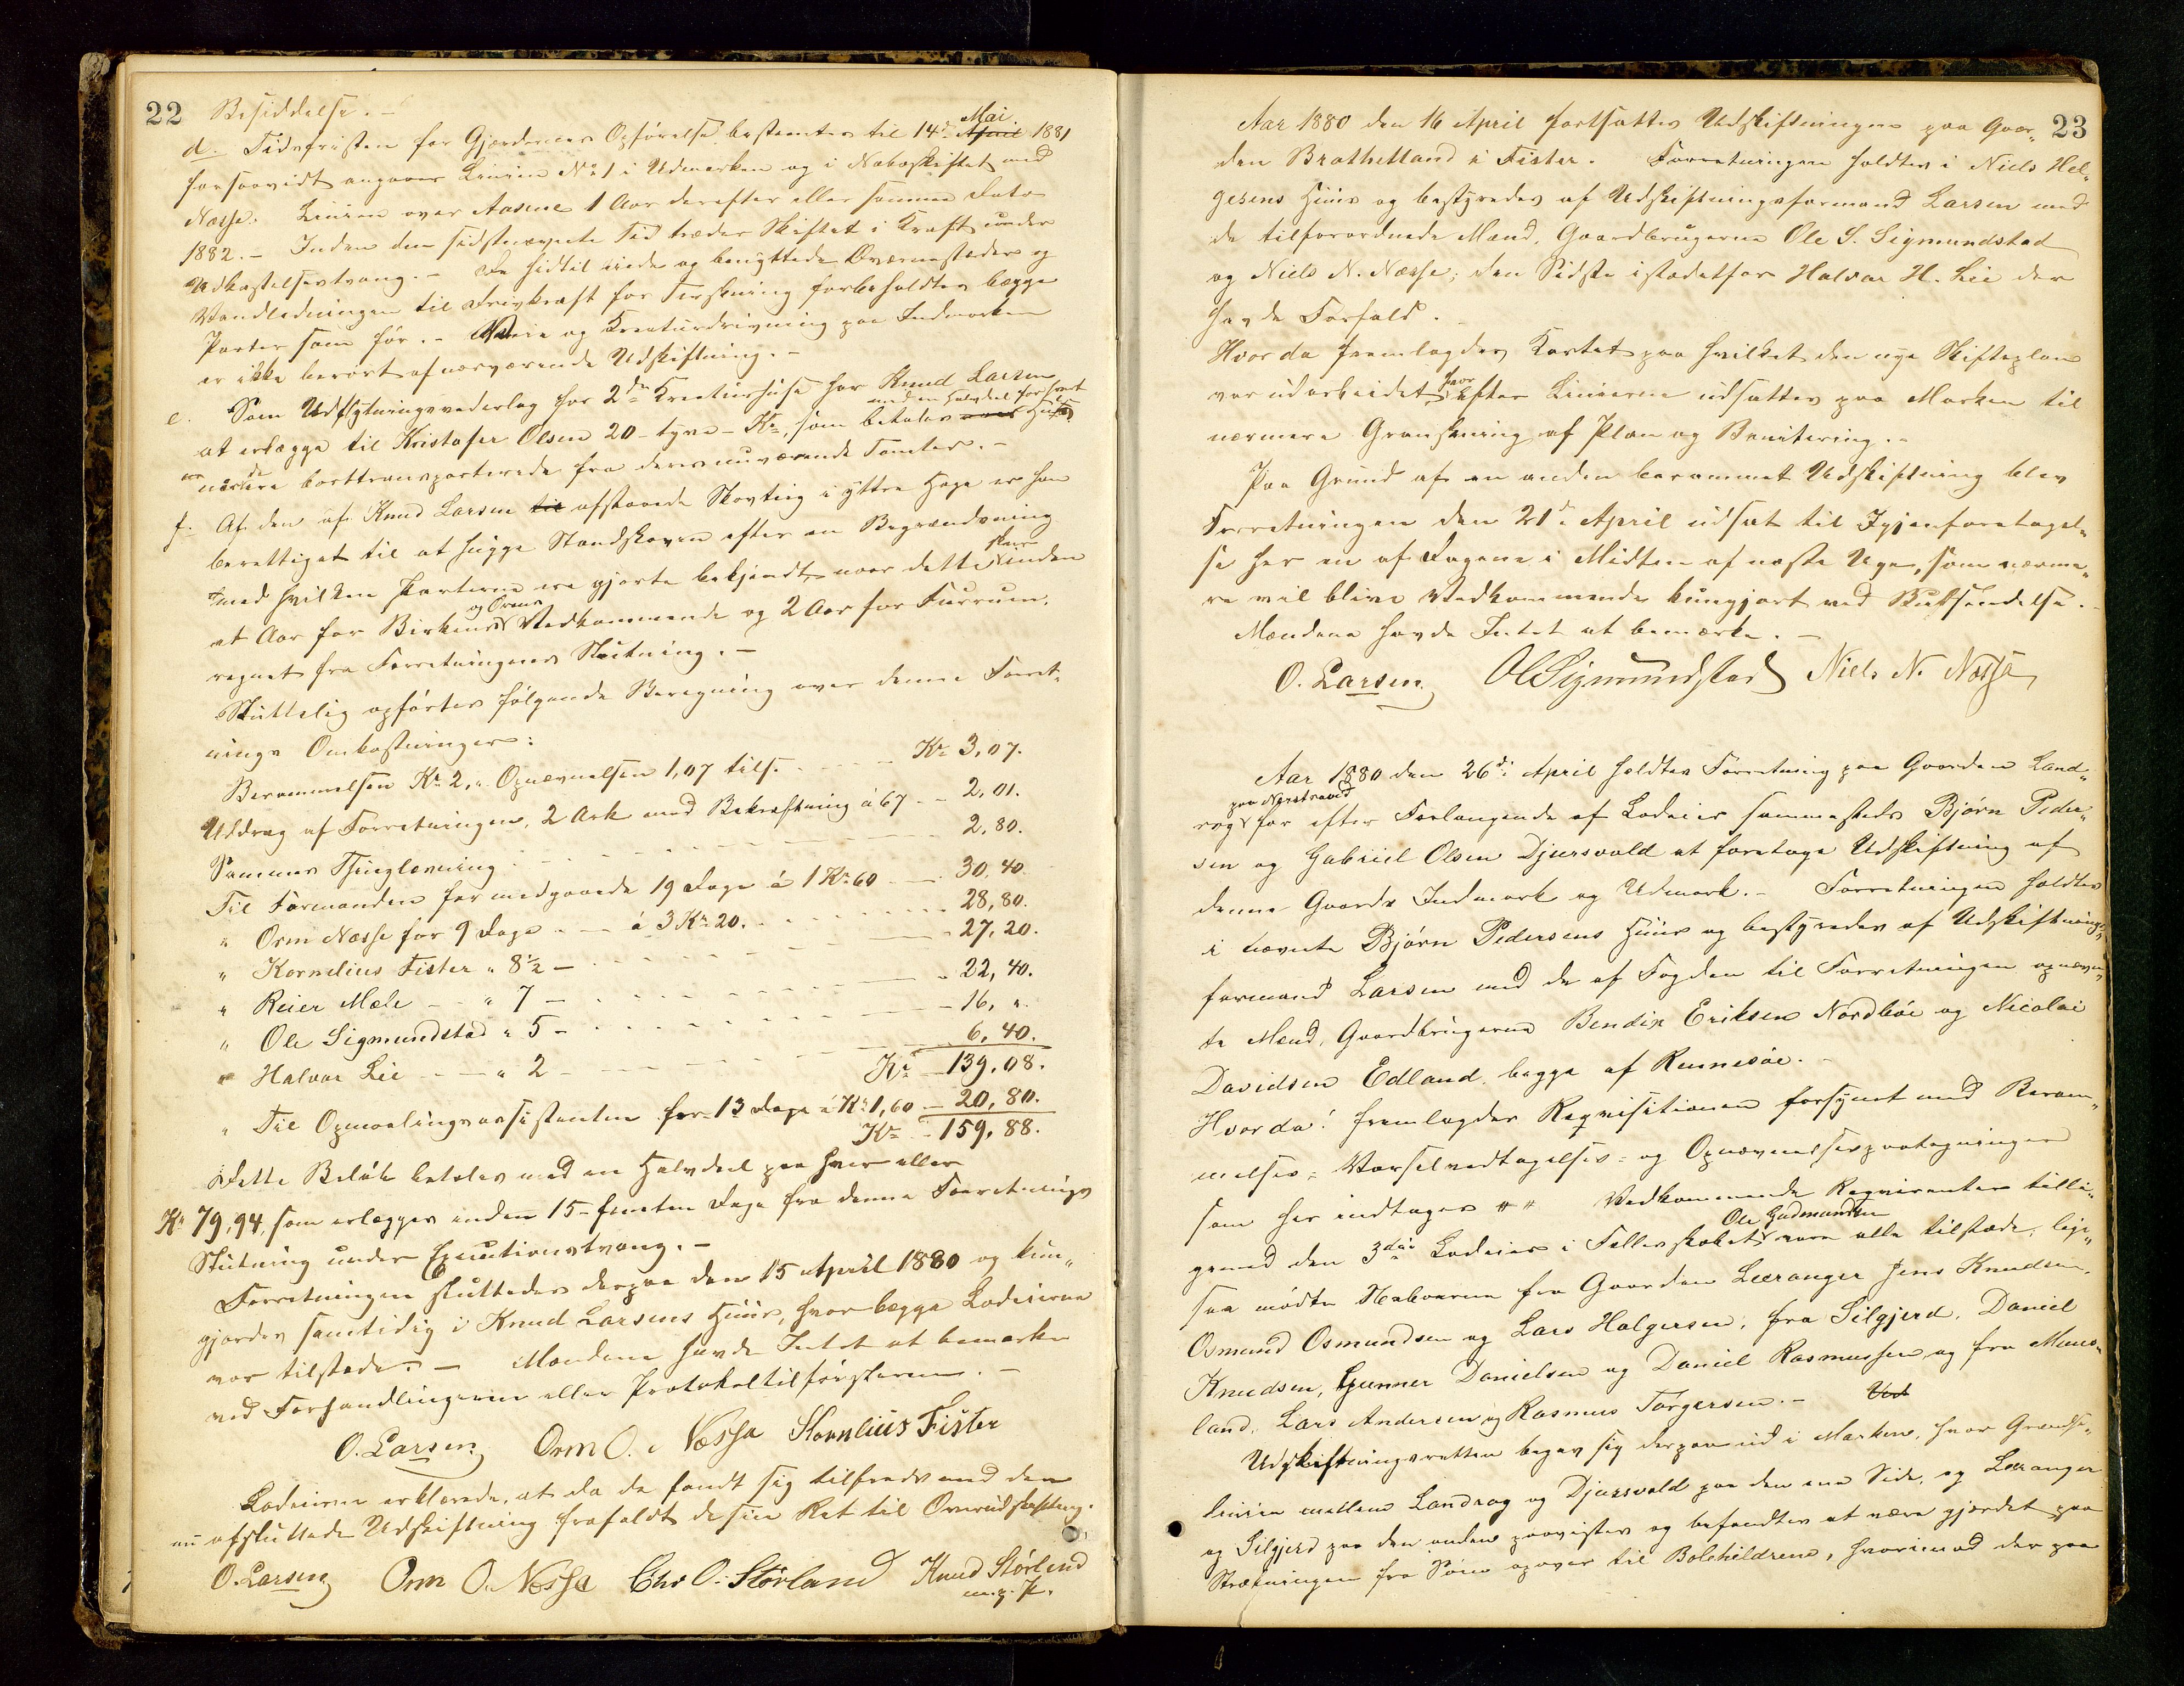 22
Besiddelse. –
d. Tidsfristen for Gjærdernes Opførelse bestemtes til 14de April Mai 1881
forsaavidt angaaer Linien No 1 i Udmarken og i Naboskiftet med
Næsse. Linien over Aasene 1 Aar derefter eller samme Dato
1882. – Inden den sidstnævnte Tid træder Skiftet i Kraft under
Udkastelsestvang. – De hidtil havde og benyttede Qværnesteder og
Vandledningen til Drivkraft for Terskning forbeholdtes begge
Parter som før. – Veie og Kreaturdrivning paa Indmarken
er ikke berørt af nærværende Udskiftning. –
e. Som Udflytningsvederlag for 2de Kreaturhuse har Knud Larsen
at erlægge til Kristofer Olsen 20 – tyve – Kr, som betales med en Halvdel for hvert Huus
naar de ere borttransporterede fra deres nuværende Tomter. –
f. Af den af Knud Larsen til afstaaede Skovteig i yttre Hage er han
berettiget til at hugge Standskoven efter en Begrændsning
med hvilken Parterne ere gjorte bekjendt, naar dette skeer inden
et Aar for Birkens og Orens Vedkommende og 2 Aar for Furruen,
regnet fra Forretningens Slutning. –
Sluttelig opførtes følgende Beregning over denne Forret-
nings Omkostninger:
Berammelsen Kr 2, " Opnævnelsen 1,07 tils. – – – Kr 3,07.
Uddrag af Forretningen, 2 Ark med Bekræftning á 67 – – 2,01.
Sammes Thinglæsning – – – 2,80.
Til Formanden for medgaaede 19 Dage á 1 Kr 60 – – 30,40.
" Orm Næsse for 9 Dage – – á 3 Kr 20. – – – 28,80.
" Kornelius Fister " 8½ – – – 27,20.
" Reier Mæle – – " 7 – – – 22,40.
" Ole Sigmundstad " 5 – – – 16, ".
" Halvar Lie – – " 2 – – – 6,40.
Kr 139,08.
" Til Opmaalingsassistenten for 13 Dage á Kr 1,60 – 20,80.
Kr – 159,88.
Dette Beløb betales med en Halvdel paa hver eller
Kr 79,94, som erlægges inden 15 – femten Dage fra denne Forretnings
Slutning under Executionstvang. –
Forretningen sluttedes derpaa den 15 April 1880 og kun-
gjordes samtidig i Knud Larsens Huus, hvor begge Lodeierne
var tilstede. – Mændene havde Intet at bemærke
ved Forhandlingerne eller Protokoltilførslerne. –
O. Larsen Orm O. Næsse Kornlius Fister
Lodeierne erklærede, at da de fandt sig tilfreds med den
nu afsluttede Udskiftning frafaldt de sin Ret til Overudskiftning.
O. Larsen Orm O. Næsse Chr O. Størland Knud Störland
m. p. P.
23
Aar 1880 den 16 April fortsattes Udskiftningen paa Gaar-
den Brathetland i Fister. Forretningen holdtes i Niels Hel-
gesens Huus og bestyredes af Udskiftningsformand Larsen med
de tilforordnede Mænd, Gaardbrugerne Ole S. Sigmundstad
og Niels N. Næsse, den Sidste istedetfor Halvar H. Lie der
havde Forfald.
Hvor da fremlagdes Kartet paa hvilket den nye Skifteplan
var udarbeidet, hvorefter Linierne udsattes paa Marken til
nærmere Granskning af Plan og Bonitering. –
Paa Grund af en anden berammet Udskiftning blev
Forretningen den 21de April udsat til Igjenforetagel-
se her en af Dagene i Midten af næste Uge, som nærme-
re vil blive Vedkommende kungjort ved Budsendelse. –
Mændene havde Intet at bemærke. –
O. Larsen OSSigmundstad Niels N. Næsse
Aar 1880 den 26de April holdtes Forretning paa Gaarden Land-
rog paa Norstrand for efter Forlangende af Lodeier sammesteds Bjørn Peder-
sen og Gabriel Olsen Djursvold at foretage Udskiftning af
denne Gaards Indmark og Udmark. – Forretningen holdtes
i nævnte Bjørn Pedersens Huus og bestyredes af Udskiftnings-
formand Larsen med de af Fogden til Forretningen opnævn-
te Mænd, Gaardbrugerne Bendix Eriksen Nordbøe og Nicolai
Davidsen Edland, begge af Rennesøe. –
Hvor da! fremlagdes Reqvisitionen forsynet med Beram-
melses- Varselvedtagelses- og Opnævnelsespaategninger
som her indtages " " Vedkommende Reqvirenter tilli-
gemed den 3die Lodeier i Fellesskabet Ole Gudmundsen vare alle tilstede, lige-
saa mødte Naboerne fra Gaarden Leranger Jens Knudsen,
Osmund Osmundsen og Lars Halgersen, fra Silgjerd, Daniel
Knudsen, Gunner Danielsen og Daniel Rasmussen, og fra Meme-
land, Lars Andersen og Rasmus Torgersen. – Ved
Udskiftningsretten begav sig derpaa ud i Marken, hvor Grændse-
linien mellem Landrog og Djursvold paa den ene Side, og Leranger
og Silgjerd paa den anden paavistes og befandtes at være gjærdet paa
Strækningen fra Søen opover til Bolehildrene, hvorimod der paa